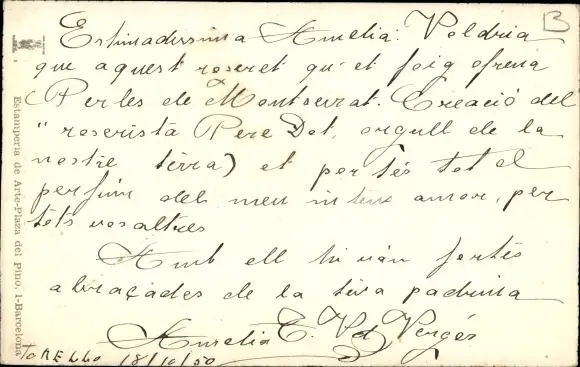 B
Estimadissima Amelia: Voldria
que aquest roseret qu' et faig ofrena
(Perles de Montserrat. Creació del
"roserista Pere Dot, orgull de la
nostre terra) et portés tot el
perfum del meu intens amor, per
tots vosaltres
Amb ell hi van fortes
abraçades de la teva padrina
Aurelia C. Vd Vergés
TORELLO 18/10/50
Estamperia de Arte-Plaza del Pino, 1-Barcelona